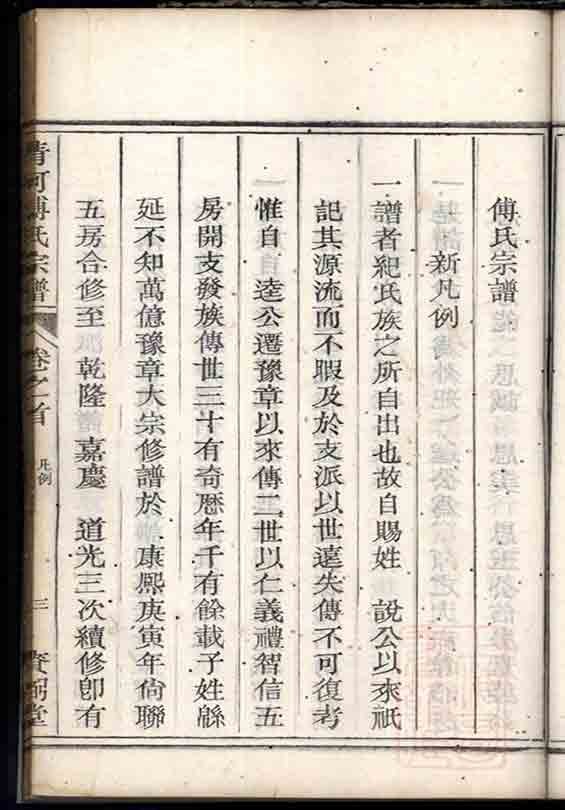 傅氏宗譜
新凡例
一譜者紀氏族之所自出也故自賜姓 說公以來祇
記其源流而不暇及於支派以世遠失傳不可復考
惟自 逵公遷豫章以來傳二世以仁義禮智信五
房開支發族傳世三十有奇歷年千有餘載子姓緜
延不知萬億豫章大宗修譜於 康熙庚寅年尙聯
五房合修至 乾隆 嘉慶 道光三次續修卽有
清河傅氏宗譜
卷之首
凡例
三